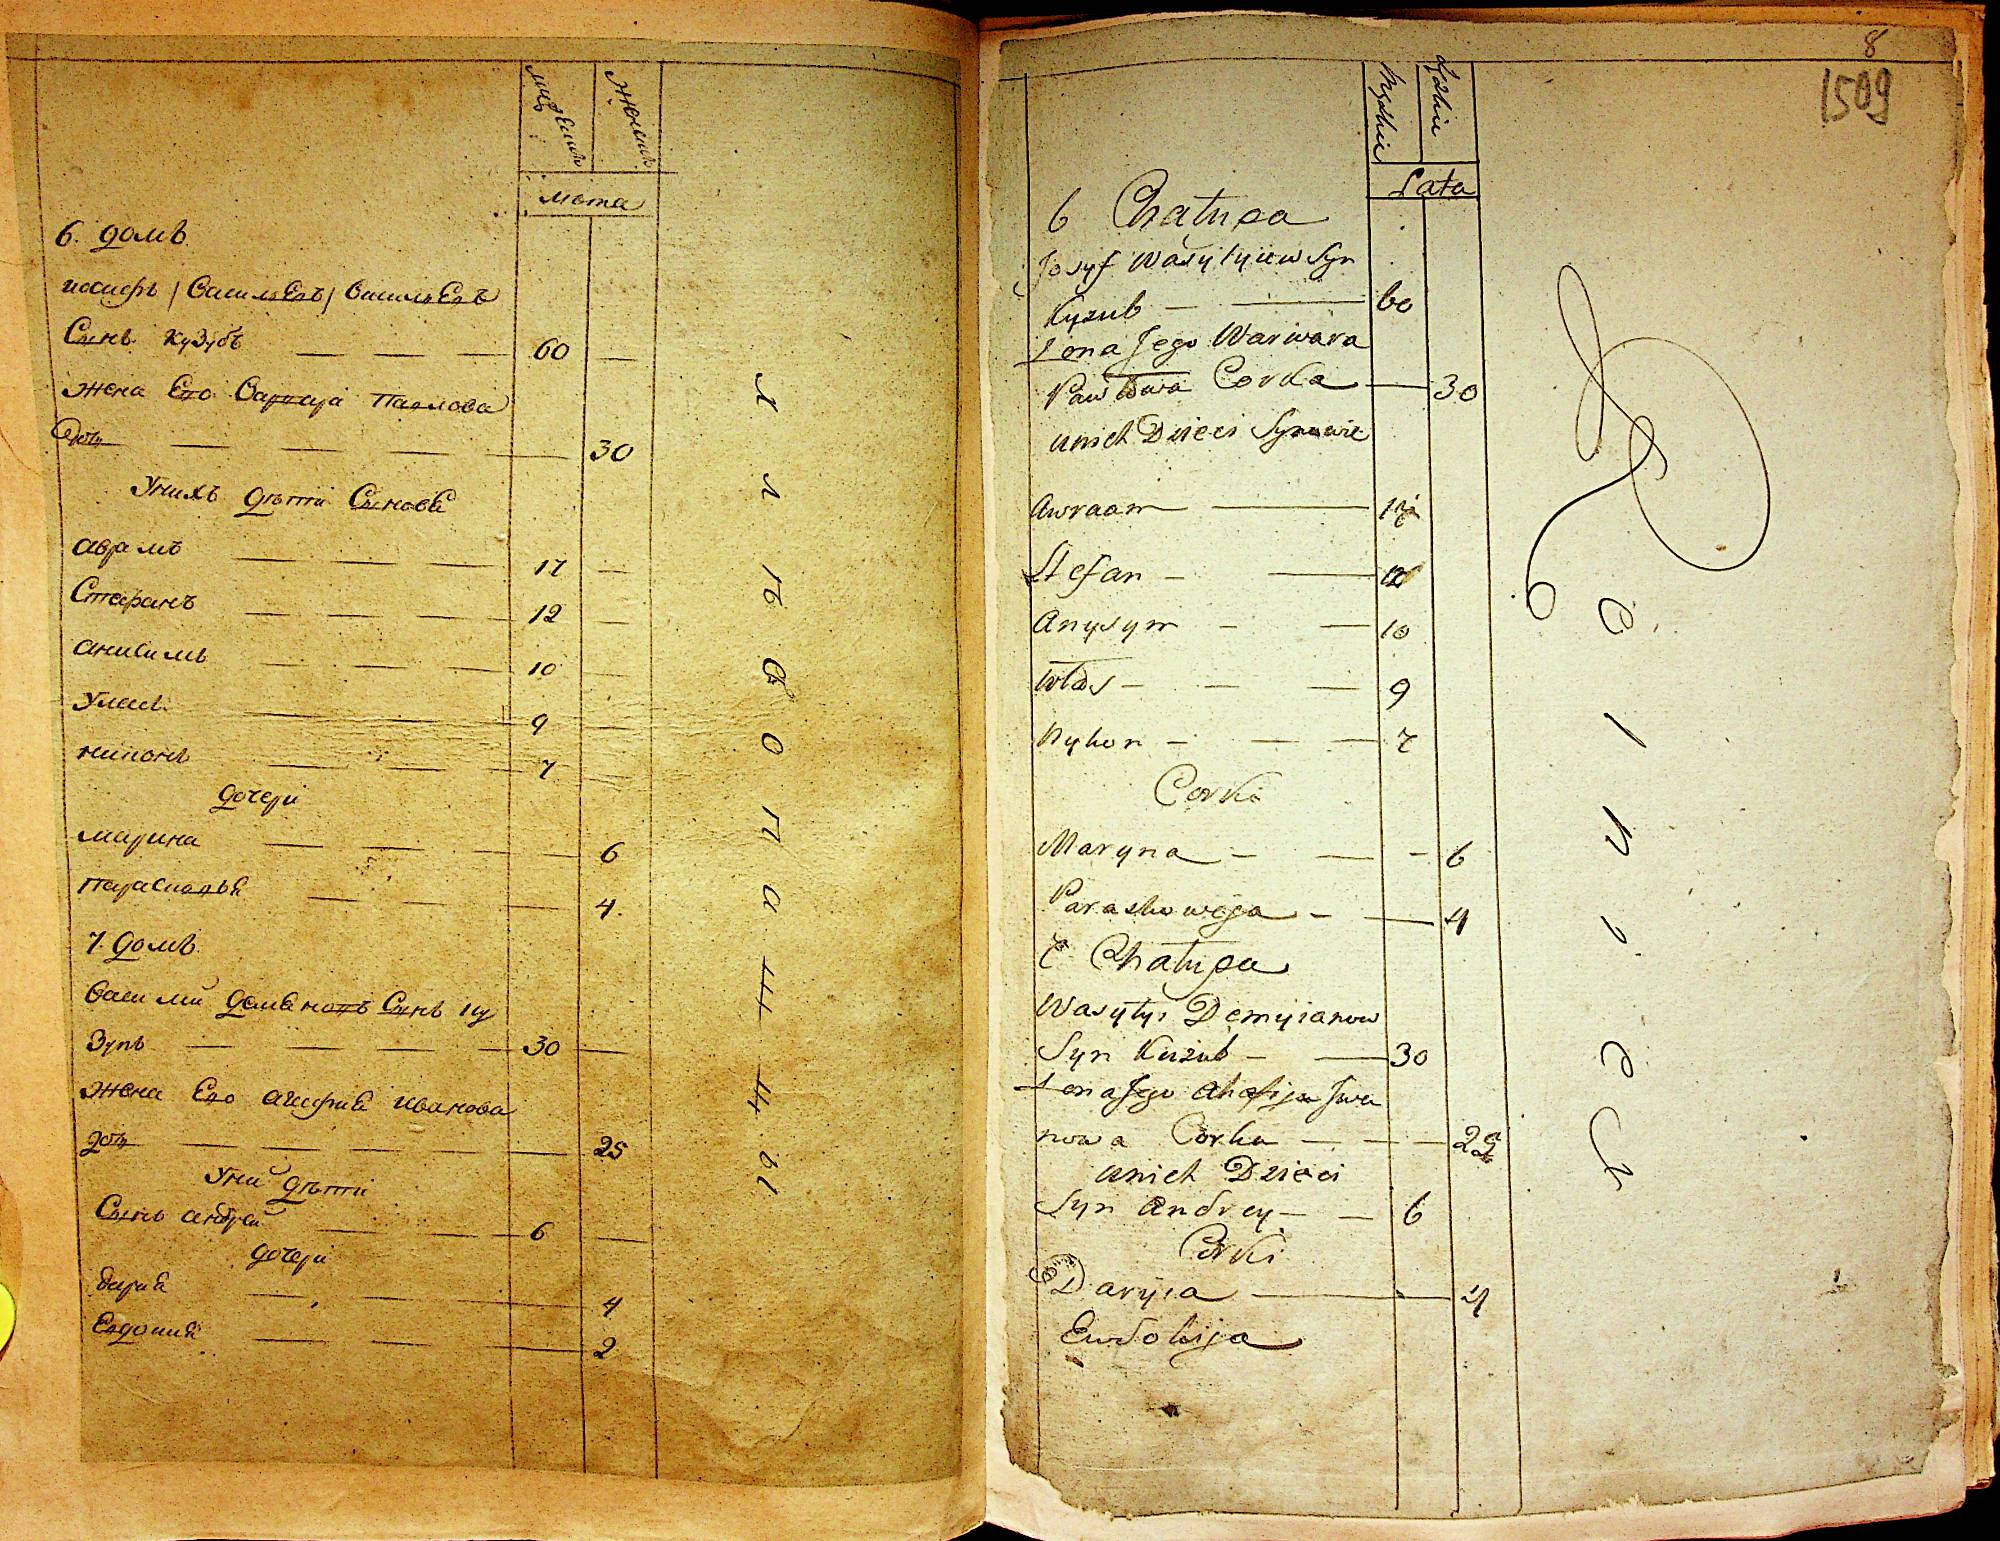 мужеский
женский
лѣта
6. домъ
иосифъ / Василіевъ / Василіевъ
Сынъ кузубъ 60
жена Его Варвара Павлова
дочь 30
У нихъ дѣти Сынове
аврамъ 17
Стефанъ 12
анисимъ 10
Уласъ 9
никонъ 7
дочери
марина 6
параскевія 4.
7. домъ
василий деміановъ Сынъ ку
Зупъ 30
жена Его агафия иванова
дочь 25
У ни дѣти
Сынъ андрей 6
дочери
дария 4
Евдокия 2
Х
л
ѣ
б
о
п
а
ш
ц
ы
8
1509
Męzkie
Żzkie
Lata
6 Chałupa
Josyf Wasylyiew Syn
Kuzub 60
Żona Jego Warwara
Pawłowa Corka 30
U nich Dzieci Synowie
Awraam 17
Stefan 12
Anysym 10
Włas 9
Nykon 7
Corki
Maryna 6
Paraskowyja 4
7 Chałupa
Wasylyi Demyianow
Syn Kuzub 30
Żona Jego Ahafija Iwa
nowa Corka 25
U nich Dzieci
Syn Andrey 6
Corki
Daryia 4
Ewdokija
R
o
l
n
i
c
y